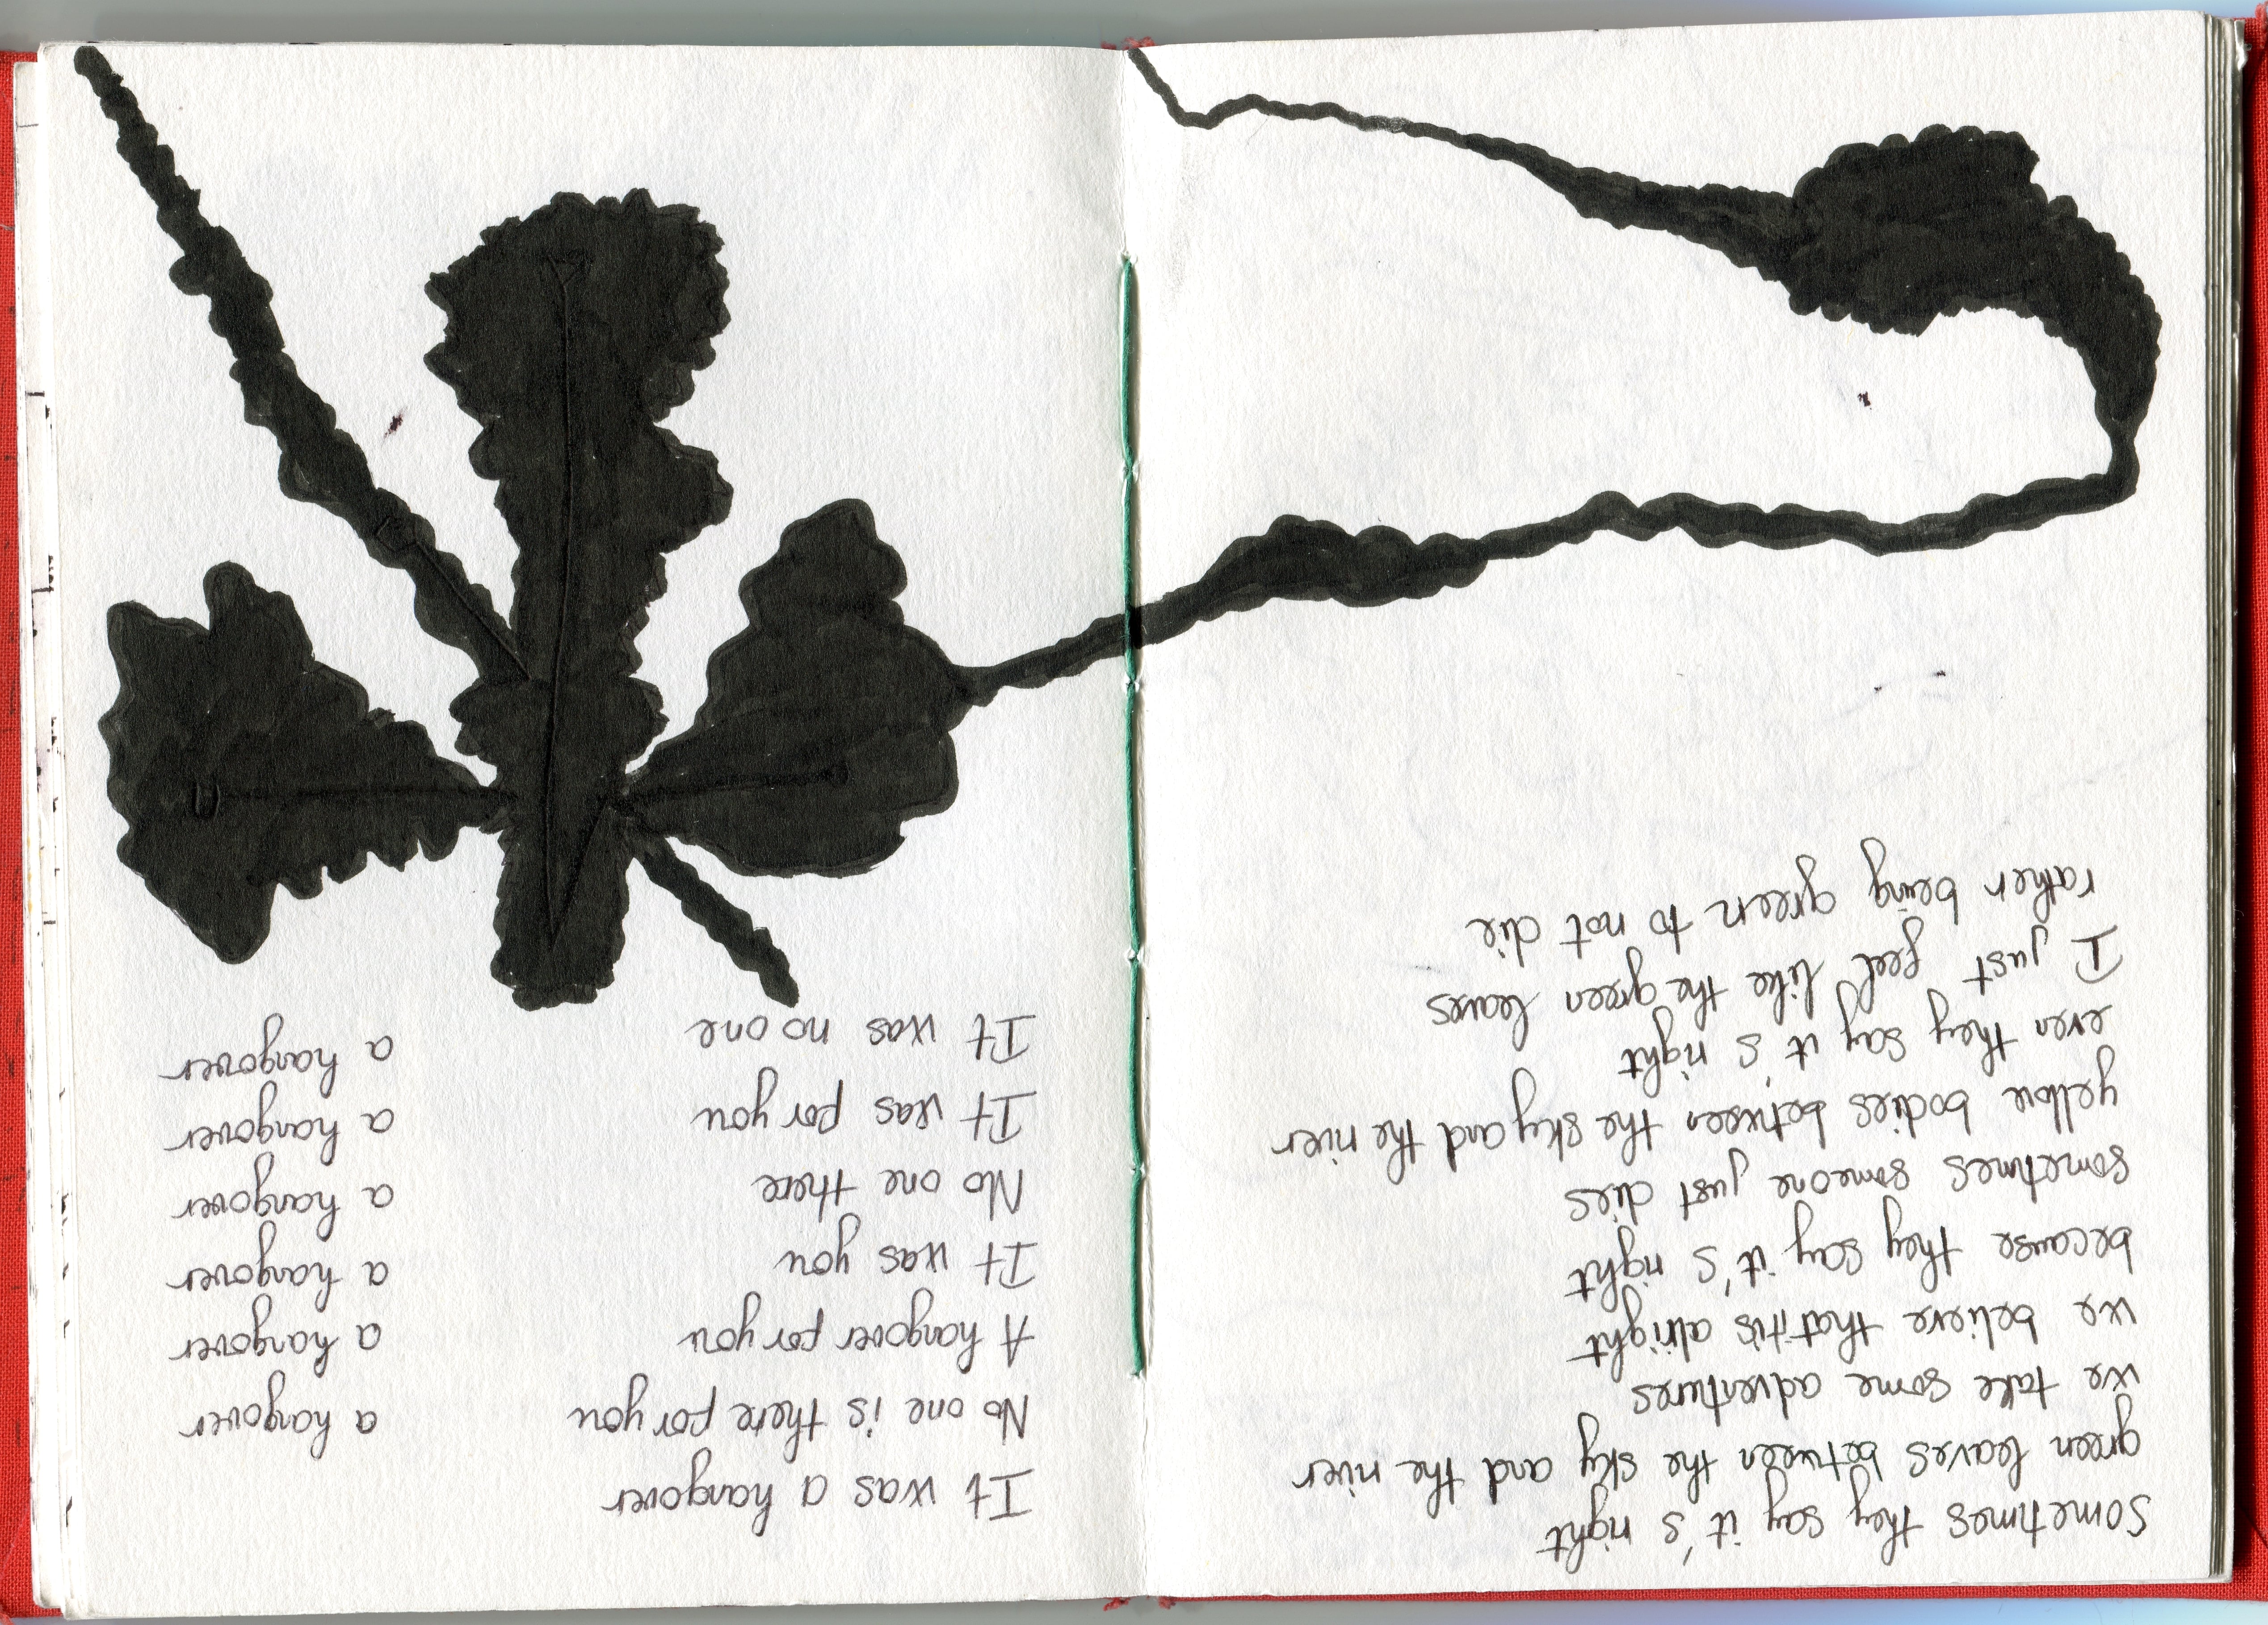 sometimes they say it's right
green leaves between the sky and the river
we take some adventures
we believe that it's alright
because they say it's right
sometimes someone just dies
yellow bodies between the sky and the river
even they say it's right
I just feel like the green leaves
rather being green to not die
It was a hangover
No one is there for you a hangover
A hangover for you a hangover
It was you a hangover
No one there a hangover
It was for you a hangover
It was no one a hangover